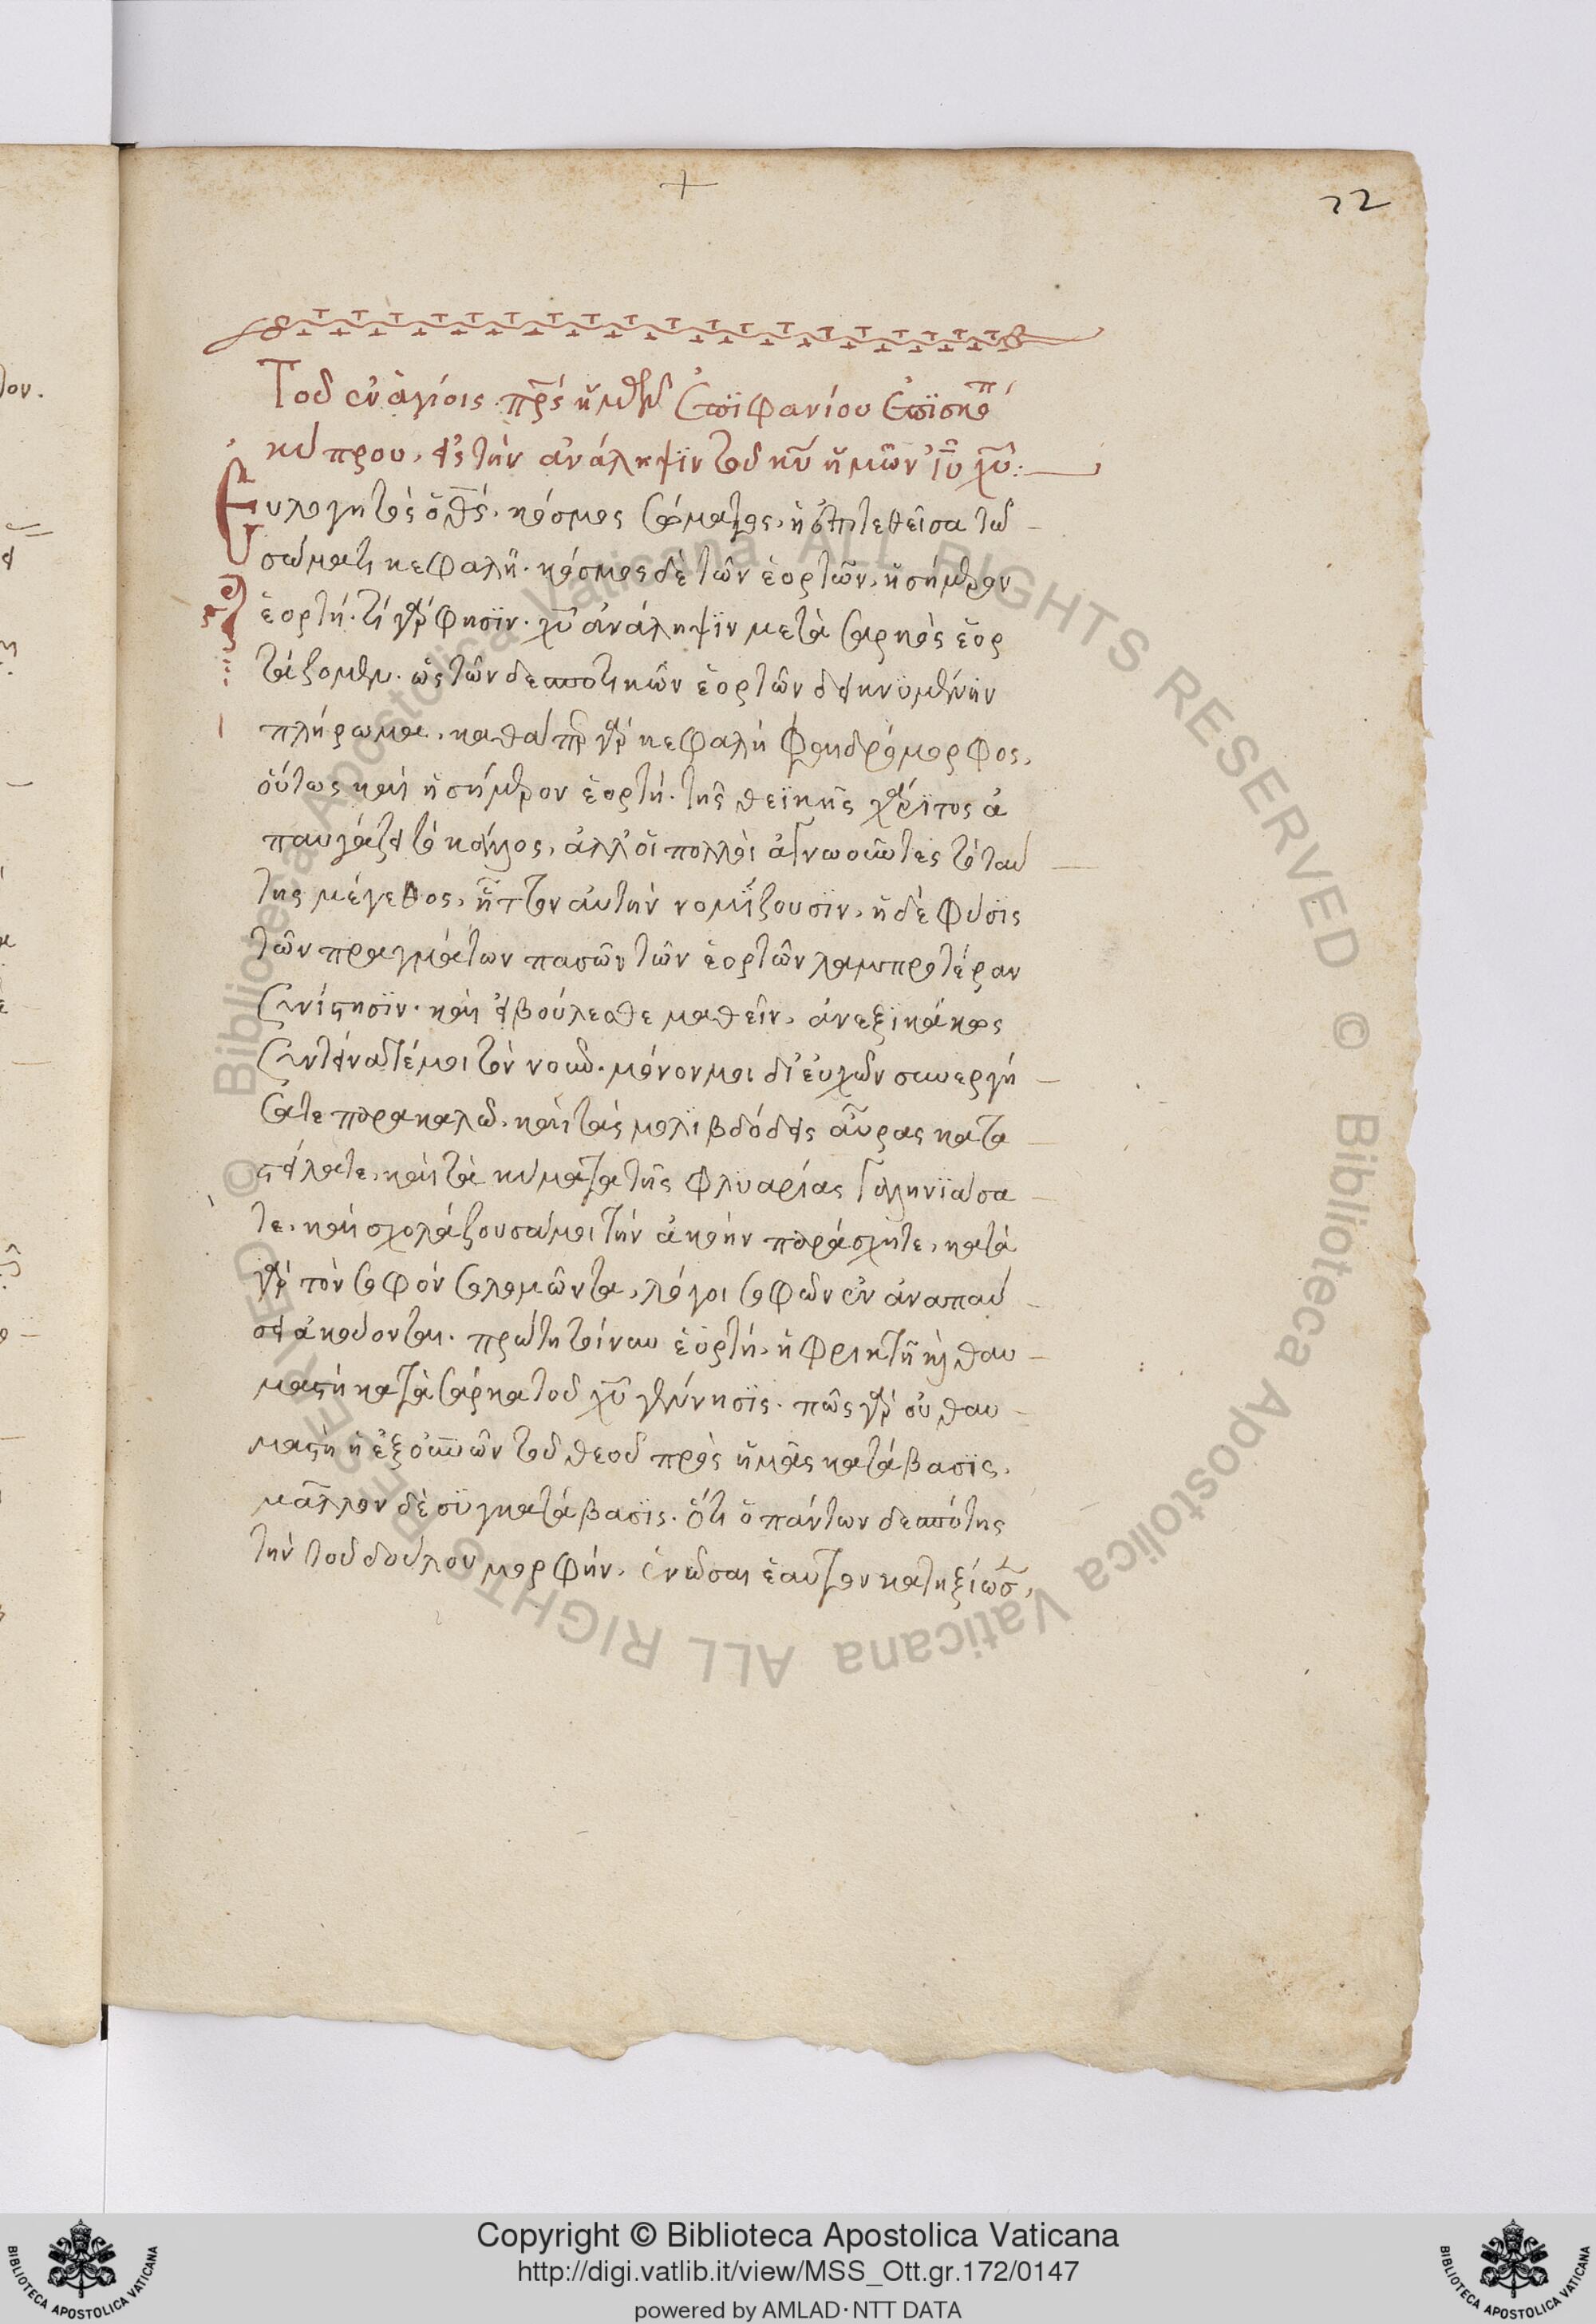 22
Τοῦ ἐν ἁγίοις πρς ἡμῶν Ἐπϊφανίου Ἐπϊσκό
κύπρου, εἰς τὴν ἀνάληψϊν τοῦ κυ ἡμῶν ἰυ χυ:
Εὐλογητὸς ὁ θς. κόσμος σώματος, ἡ ἐπιτεθεῖσα τῶ
σώματι κεφαλή. κόσμος δὲ τῶν ἑορτῶν, ἡ σήμερον
ἑορτή. τί γάρ φησϊν. χυ ἀνάληψϊν μετὰ σαρκὸς ἑορ
τάζομεν. ὡς τῶν δεσποτικῶν ἑορτῶν δεικνυμένην
πλήρωμα. καθάπερ γὰρ κεφαλὴ φαιδρόμορφος,
οὕτως καὶ ἡ σήμερον ἑορτή. τῆς θεϊκῆς χάρϊτος ἀ
παυγάζει τὸ κάλλος, ἀλλ' οἱ πολλοὶ ἀγνοοῦντες τὸ ταύ
της μέγεθος, ἧττον αὐτὴν νομΐζουσϊν, ἡ δὲ φύσϊς
τῶν πραγμάτων πασῶν τῶν ἑορτῶν λαμπροτέραν
συνίστησϊν. καὶ εἰ βούλεσθε μαθεῖν, ἀνεξϊκάκως
συντείνατέ μοι τὸν νοῦν. μόνον μοι δι' εὐχῶν συνεργή
σατε παρακαλῶ, καὶ τὰς μολιβδόδεις αὔρας κατα
στείλατε, καὶ τὰ κύματα τῆς φλυαρίας γαληνϊάσα
τε, καὶ σχολάζουσάν μοι τὴν ἀκοὴν παράσχητε, κατὰ
γὰρ τὸν σοφὸν σολομῶντα, λόγοι σοφῶν ἐν ἀναπαύ
σει ἀκούονται. πρώτη τοίνυν ἑορτή, ἡ φρικτὴ καὶ θαυ
μαστὴ κατὰ σάρκα τοῦ χυ γέννησϊς. πῶς γὰρ οὐ θαυ
μαστὴ ἡ ἐξ οὐρανῶν τοῦ θεοῦ πρὸς ἡμᾶς κατάβασϊς,
μᾶλλον δὲ συγκατάβασϊς. ὅτι ὁ πάντων δεσπότης
τὴν τοῦ δούλου μορφήν, ἑνῶσαι ἑαυτὸν κατηξίωσ,
Copyright © Biblioteca Apostolica Vaticana
http://digi.vatlib.it/view/MSS_Ott.gr.172/0147
powered by AMLAD·NTT DATA
BIBLIOTECA APOSTOLICA VATICANA
BIBLIOTECA APOSTOLICA VATICANA
© Biblioteca Apostolica Vaticana ALL RIGHTS RESERVED © Biblioteca Apostolica Vaticana ALL RIGHTS RESERVED